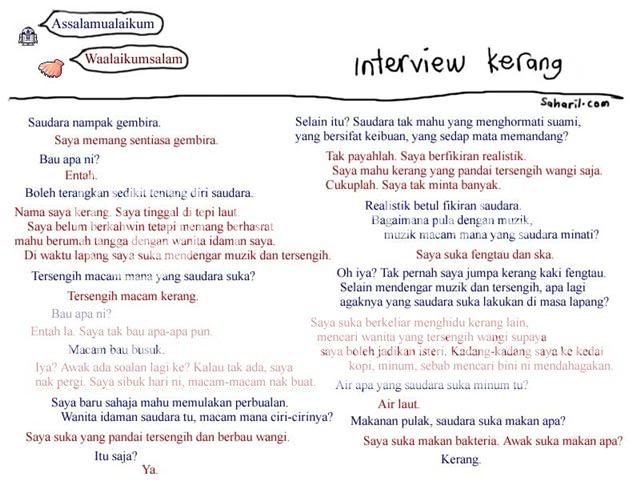 Assalamualaikum
Waalaikumsalam
Interview kerang
Saharil.com
Saudara nampak gembira.
Saya memang sentiasa gembira.
Bau apa ni?
Entah.
Boleh terangkan sedikit tentang diri saudara.
Nama saya kerang. Saya tinggal di tepi laut.
Saya belum berkahwin tetapi memang berhasrat
mahu berumah tangga dengan wanita idaman saya.
Di waktu lapang saya suka mendengar muzik dan tersengih.
Tersengih macam mana yang saudara suka?
Tersengih macam kerang.
Bau apa ni?
Entah la. Saya tak bau apa-apa pun.
Macam bau busuk.
Iya? Awak ada soalan lagi ke? Kalau tak ada, saya
nak pergi. Saya sibuk hari ni, macam-macam nak buat.
Saya baru sahaja mahu memulakan perbualan.
Wanita idaman saudara tu, macam mana ciri-cirinya?
Saya suka yang pandai tersengih dan berbau wangi.
Itu saja?
Ya.
Selain itu? Saudara tak mahu yang menghormati suami,
yang bersifat keibuan, yang sedap mata memandang?
Tak payahlah. Saya berfikiran realistik.
Saya mahu kerang yang pandai tersengih wangi saja.
Cukuplah. Saya tak minta banyak.
Realistik betul fikiran saudara.
Bagaimana pula dengan muzik,
muzik macam mana yang saudara minati?
Saya suka fengtau dan ska.
Oh iya? Tak pernah saya jumpa kerang kaki fengtau.
Selain mendengar muzik dan tersengih, apa lagi
agaknya yang saudara suka lakukan di masa lapang?
Saya suka berkeliar menghidu kerang lain,
mencari wanita yang tersengih wangi supaya
saya boleh jadikan isteri. Kadang-kadang saya ke kedai
kopi, minum, sebab mencari bini ni mendahagakan.
Air apa yang saudara suka minum tu?
Air laut.
Makanan pulak, saudara suka makan apa?
Saya suka makan bakteria. Awak suka makan apa?
Kerang.